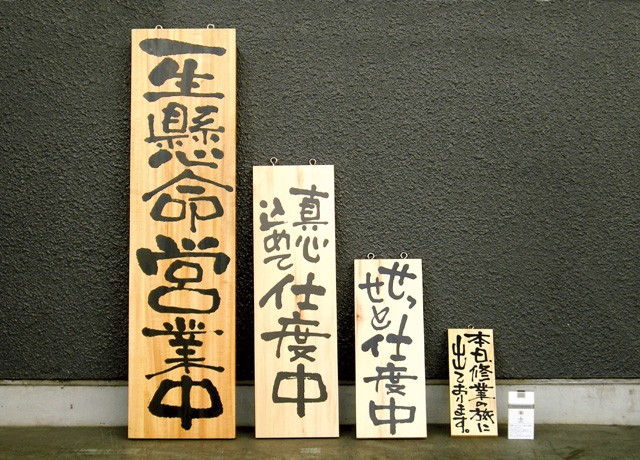 一生懸命営業中
真心
込めて
仕度中
せっ
せと
仕度中
本日、修業の旅に
出ております。